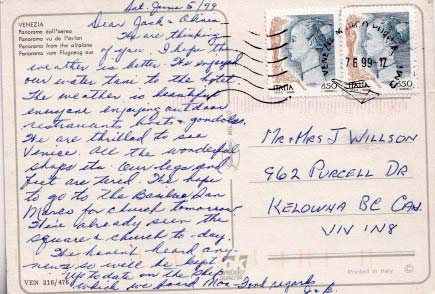 Sat. June 5/99
VENEZIA
Panorama dall'aereo
Panorama vu de l'avion
Panorama from the airplane
Panorama vom Flugzeug aus
Dear Jack &
We are thinking
of you. I hope the
weather is better. We enjoyed
our water taxi to the hotel.
The weather is beautiful
everyone enjoying outdoor
restraurants, boats & gondolas.
We are thrilled to see
Venice. All the wonderful
shops etc. Our legs and
feet are tired. We hope
to go to the Basilica San
Marco for church tomorrow.
We've already seen the
square & church to-day.
We haven't heard any
news so will be kept
up to date on the ship
which we board Mon. Fond regards
VEN 216/476
ITALIA 650
ITALIA 650
7 6 99-17
MR & MRS J WILLSON
962 PURCELL DR
KELOWNA BC CAN.
V1V 1N8
Printed in Italy